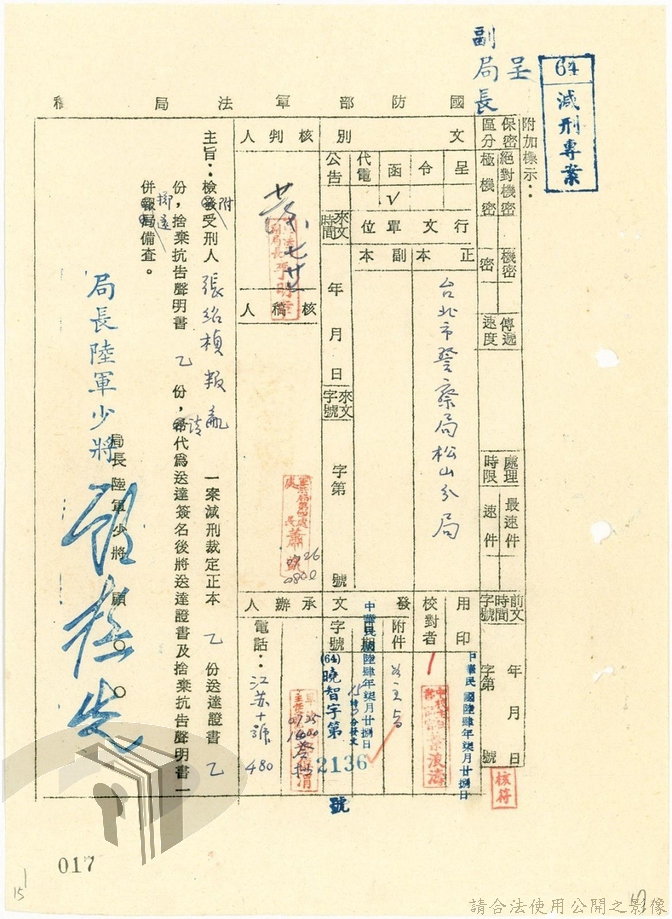 64減刑專案
呈
副局長
國防部軍法局稿
附加標示：
保密區分
絕對機密
極機密
機密
密
傳遞速度
處理時限
最速件
速件
前文時間字號
年月日
字第號
文別
呈
令
函
代電
公告
✓
行文單位
正本
副本
台北市警察局松山分局
來文時間
年月日
來文字號
字第號
用印
校對者
發文
附件
如主旨
中華民國陸肆年柒月廿捌日
中華民國陸肆年柒月廿捌日
字號
(64)曉智字第
2136
號
核判人
核稿人
承辦人
電話：江苏十號
480
核符
主旨：檢附受刑人張紹楨叛亂一案減刑裁定正本乙份送達證書乙
份，捨棄抗告聲明書乙份，請代為送達簽名後將送達證書及捨棄抗告聲明書一
併擲還局備查。
局長陸軍少將
局長陸軍少將顧〇〇
017
15
請合法使用公開之影像